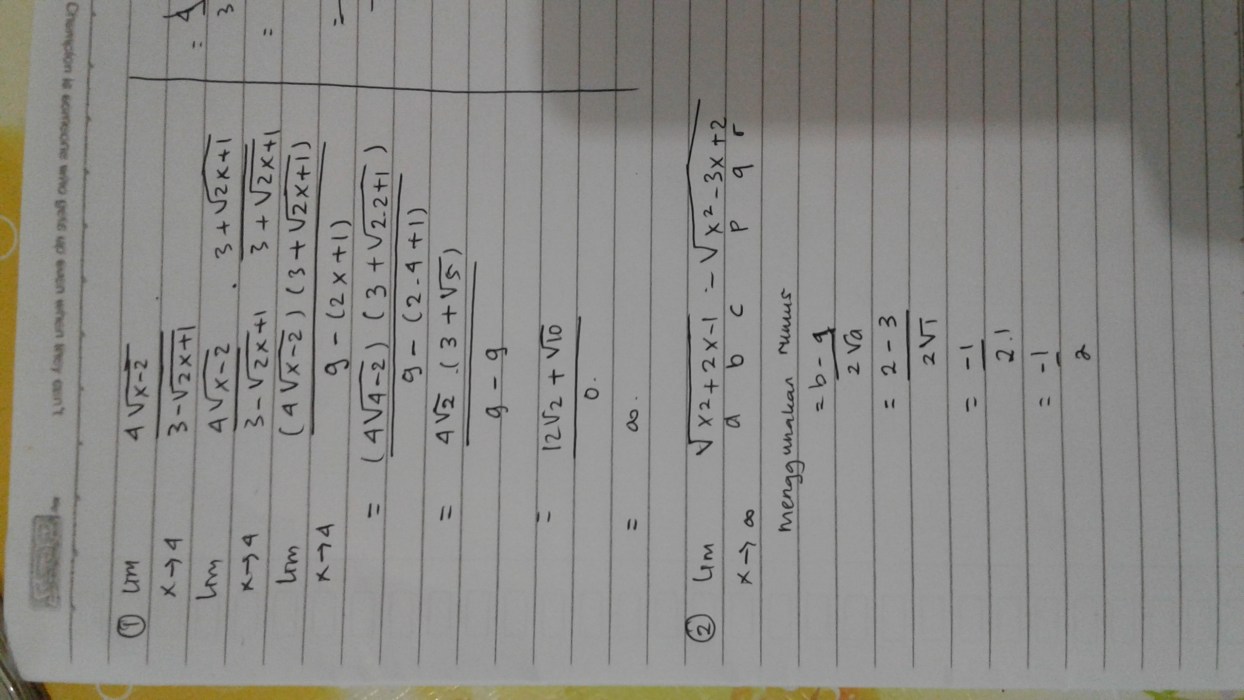 Champion is someone who gets up even when they can't
① lim 4√x-2
x→4 3-√2x+1
lim 4√x-2 . 3+√2x+1
x→4 3-√2x+1 3+√2x+1
lim (4√x-2) (3+√2x+1)
x→4 9-(2x+1)
= (4√4-2) (3+√2.2+1)
9-(2.4+1)
= 4√2 .(3+√5)
9-9
= 12√2+√10
0.
= ∞.
② lim √x2+2x-1 - √x²-3x+2
x→∞ a b c p q r
menggunakan rumus
= b-q
2√a
= 2-3
2√1
= -1
2.1
= -1
2
= 4
3
=
=